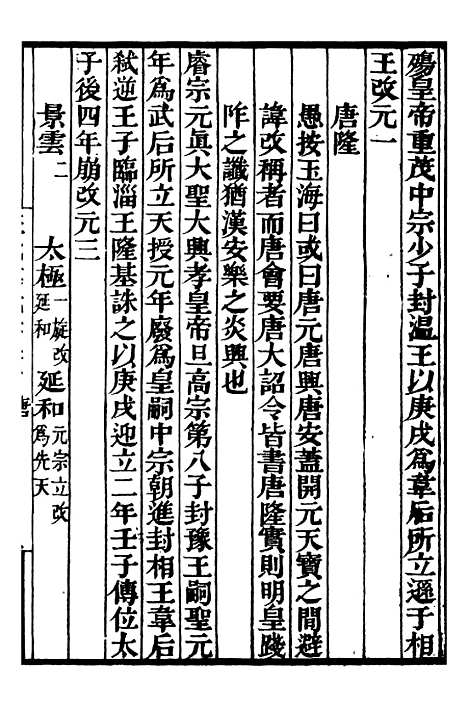 殤皇帝重茂中宗少子封温王以庚戌爲韋后所立遜于相
王改元一
唐隆
愚按玉海曰或曰唐元唐興唐安蓋開元天寶之間避
諱改稱者而唐會要唐大詔令皆書唐隆實則明皇踐
阼之讖猶漢安樂之炎興也
睿宗元眞大聖大興孝皇帝旦高宗第八子封豫王嗣聖元
年爲武后所立天授元年廢爲皇嗣中宗朝進封相王韋后
弑逆王子臨淄王隆基誅之以庚戌迎立二年壬子傳位太
子後四年崩改元三
景雲二 太極一旋改延和 延和元宗立改爲先天
唐